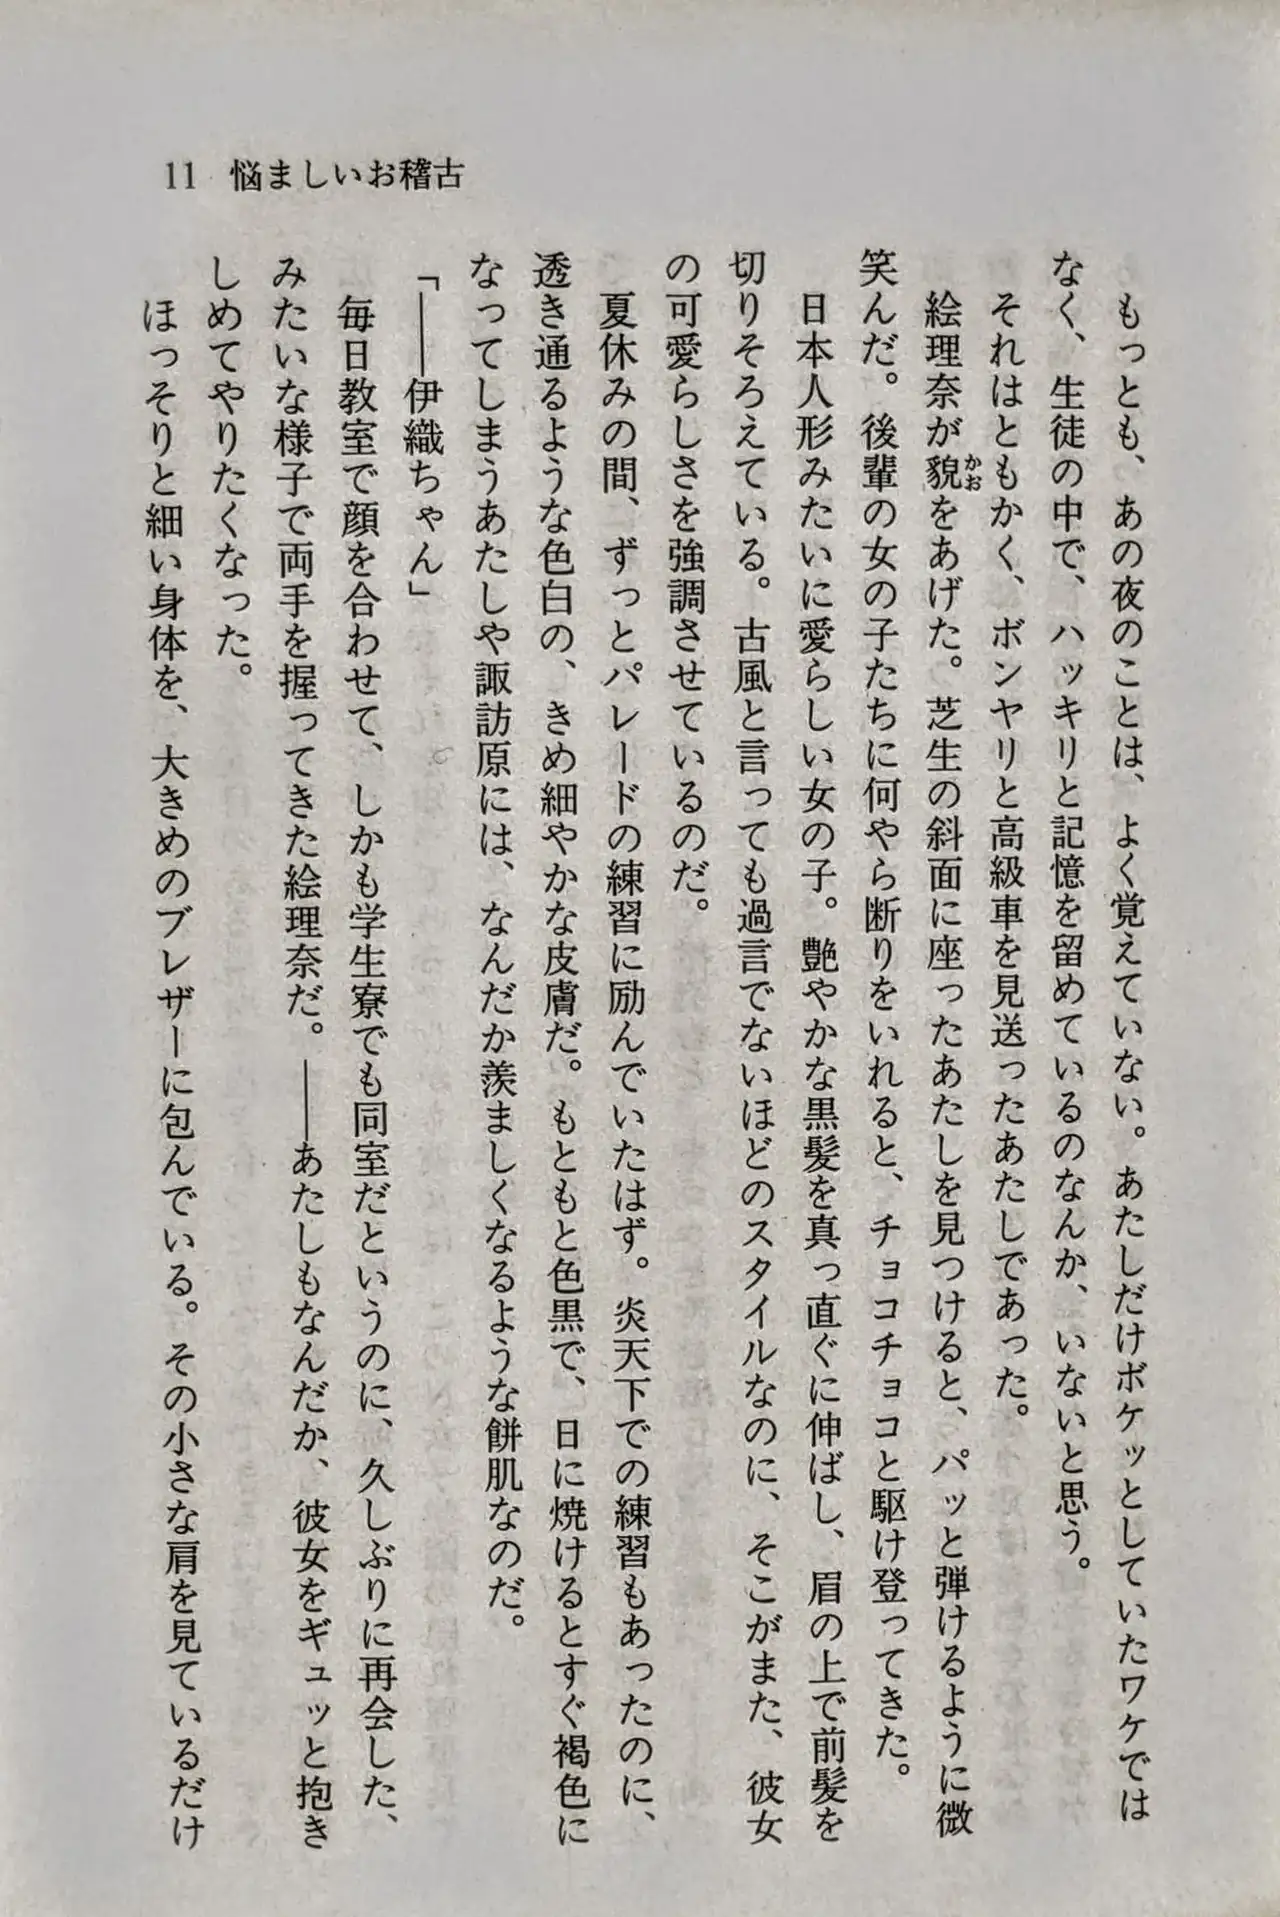 11 悩ましいお稽古
もっとも、あの夜のことは、よく覚えていない。あたしだけボケッとしていたワケでは
なく、生徒の中で、ハッキリと記憶を留めているのなんか、いないと思う。
それはともかく、ボンヤリと高級車を見送ったあたしであった。
絵理奈が貌かおをあげた。芝生の斜面に座ったあたしを見つけると、パッと弾けるように微
笑んだ。後輩の女の子たちに何やら断りをいれると、チョコチョコと駆け登ってきた。
日本人形みたいに愛らしい女の子。艶やかな黒髪を真っ直ぐに伸ばし、眉の上で前髪を
切りそろえている。古風と言っても過言でないほどのスタイルなのに、そこがまた、彼女
の可愛らしさを強調させているのだ。
夏休みの間、ずっとパレードの練習に励んでいたはず。炎天下での練習もあったのに、
透き通るような色白の、きめ細やかな皮膚だ。もともと色黒で、日に焼けるとすぐ褐色に
なってしまうあたしや諏訪原には、なんだか羨ましくなるような餅肌なのだ。
「――伊織ちゃん」
毎日教室で顔を合わせて、しかも学生寮でも同室だというのに、久しぶりに再会した、
みたいな様子で両手を握ってきた絵理奈だ。――あたしもなんだか、彼女をギュッと抱き
しめてやりたくなった。
ほっそりと細い身体を、大きめのブレザーに包んでいる。その小さな肩を見ているだけ